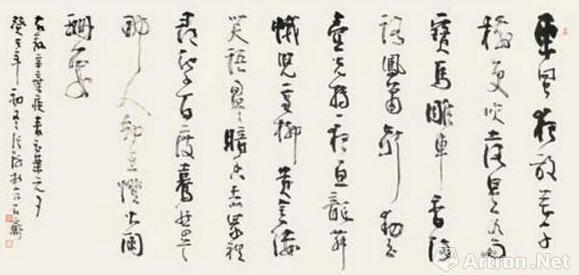 東風夜放花千
樹更吹落星如雨
寶馬雕車香滿
路鳳簫聲動玉
壺光轉一夜魚龍舞
蛾兒雪柳黃金縷
笑語盈盈暗香去衆裏
尋他千百度驀然回
那人卻在燈火闌
珊處
右録辛棄疾青玉案元夕
癸巳年初冬
Artron.Net